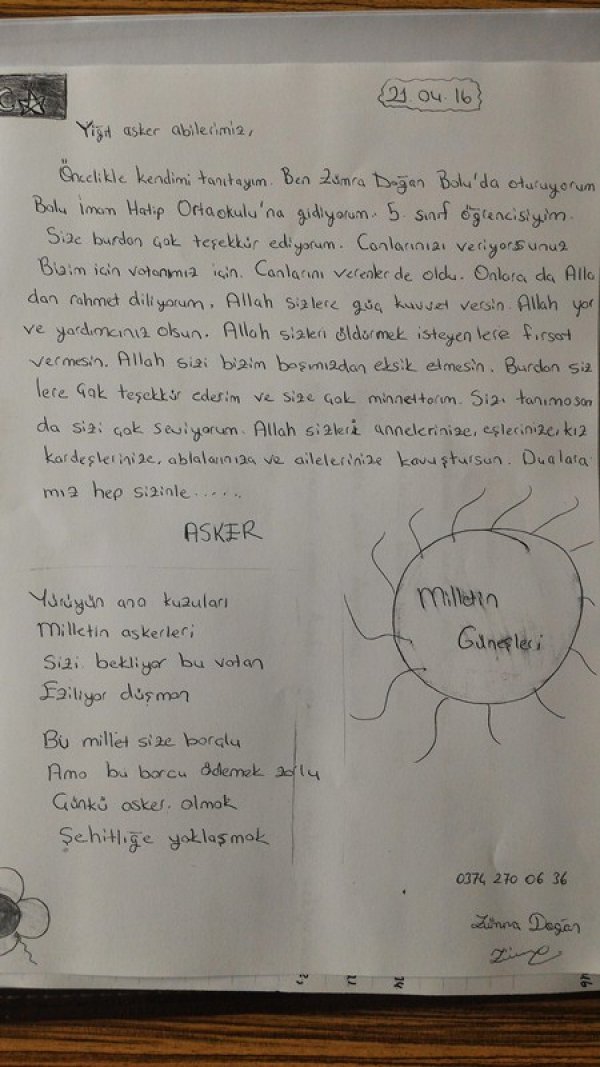 21.04.16
Yiğit asker abilerimiz,
Öncelikle kendimi tanıtayım. Ben Zümra Doğan Bolu'da oturuyorum
Bolu İmam Hatip Ortaokulu'na gidiyorum. 5. sınıf öğrencisiyim.
Size burdan çok teşekkür ediyorum. Canlarınızı veriyorsunuz
Bizim için vatanımız için. Canlarını verenler de oldu. Onlara da Alla
dan rahmet diliyorum. Allah sizlere güç kuvvet versin. Allah yar
ve yardımcınız olsun. Allah sizleri öldürmek isteyenlere fırsat
vermesin. Allah sizi bizim başımızdan eksik etmesin. Burdan siz
lere çok teşekkür ederim ve size çok minnettarım. Sizi tanımasam
da sizi çok seviyorum. Allah sizleri annelerinize, eşlerinize, kız
kardeşlerinize, ablalarınıza ve ailelerinize kavuştursun. Duaları
mız hep sizinle......
ASKER
Yürüyün ana kuzuları
Milletin askerleri
Sizi bekliyor bu vatan
Eziliyor düşman
Bu millet size borçlu
Ama bu borcu ödemek zorlu
Çünkü asker olmak
Şehitliğe yaklaşmak
Milletin
Güneşleri
0374 270 06 36
Zümra Doğan